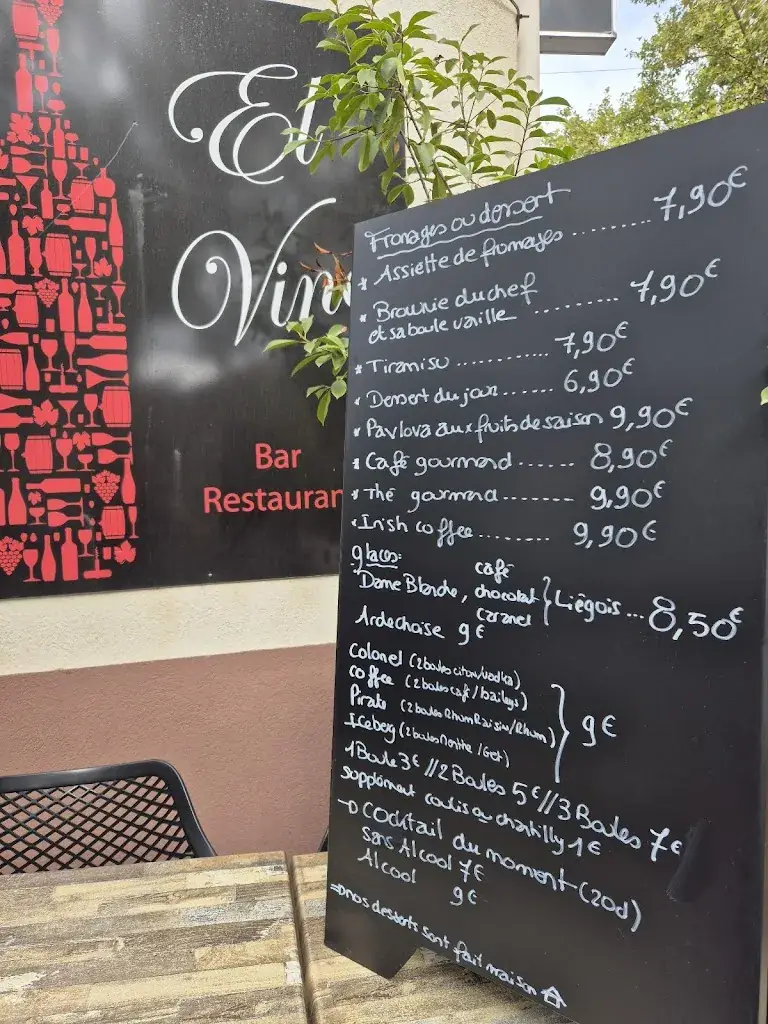 El
Vin
Bar
Restauran
Fromages ou dessert
* Assiette de fromages ....... 7,90€
* Brownie du chef
et sa boule vanille ......... 7,90€
* Tiramisu .......... 7,90€
* Dessert du jour ...... 6,90€
* Pavlova aux fruits de saison 9,90€
* Café gourmand ...... 8,90€
* Thé gourmand ....... 9,90€
* Irish coffee ........ 9,90€
glaces:
Dame Blanche, café chocolat caramel } Liégois ... 8,50€
Ardechoise 9€
Colonel (2 boules citron/vodka)
Coffee (2 boules café/baileys)
Pirate (2 boules Rhum Raisin/Rhum) } 9€
Iceberg (2 boules Menthe/Get)
1 Boule 3€ // 2 Boules 5€ // 3 Boules 7€
supplément coulis ou chantilly 1€
→ Cocktail du moment (20cl)
sans Alcool 7€
Alcool 9€
⇒ nos desserts sont fait maison